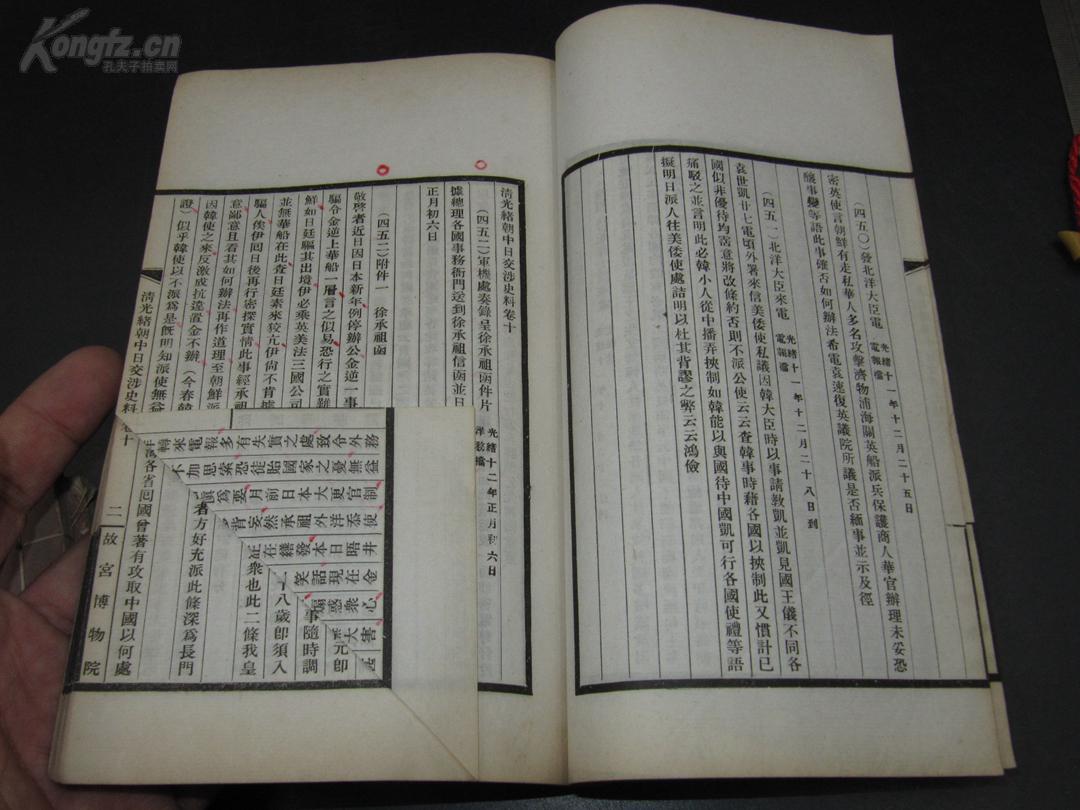 Kongfz.cn
孔夫子拍卖网
（四五〇）發北洋大臣電 光緒十一年十二月二十五日 電報檔
密英使言朝鮮有走私華人多名攻擊濟物浦海關英船派兵保護商人華官辦理未妥恐
釀事變等語此事確否如何辦法希電袁速復英議院所議是否緬事並示及徑
（四五一）北洋大臣來電 光緒十一年十二月二十八日到 電報檔
袁世凱廿七電頃外署來信美倭使私議因韓大臣時以事請教凱並凱見國王儀不同各
國似非優待均啬意將改條約否則不派公使云云查韓事時藉各國以挾制此又慣計已
痛駁之並言明此必韓小人從中播弄挾制如韓能以與國待中國凱可行各國使禮等語
擬明日派人往美倭使處詰明以杜其背謬之弊云云鴻儉
清光緒朝中日交涉史料卷十
（四五二）軍機處奏錄呈徐承祖函件片 光緒十二年正月初六日 洋務檔
據總理各國事務衙門送到徐承祖信函並日
正月初六日
（四五二）附件一 徐承祖函
敬啓者近日因日本新年例停辦公金逆一事
驅令金逆上華船一層言之似易恐行之實難
鮮如日廷驅其出境伊必乘英美法三國公司
並無華船在此查日廷素來狡亢伊尙不肯揸
驅人俟伊囘日後再行密探實情此事經承祖
意鄙意且看其如何辦法再作道理至朝鮮派
因韓使之來反激成抗違置金不辦（今春韓
證）似乎韓使以不派爲是旣明知派使無益
清光緒朝中日交涉史料卷十 二 故宮博物院
洋滿各省囘國曾著有攻取中國以何處
者方好充派此條深爲長門
衆也此二條我皇
八歲卽須入
事隨時調
元卽
轉來電報多有失實之處致令外務
不加思索恐徒貽國家之憂無益
爲要月前日本大更官制
背妄然承祖外洋忝使
証在繼發本日晤井
笑話現在金
煽惑衆心
大害